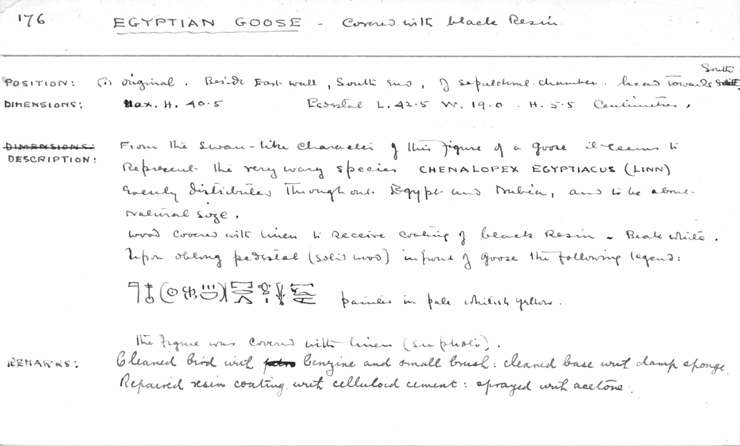 176 EGYPTIAN GOOSE - Covered with black Resin.
South
POSITION: (?) original. Beside East wall, South End, of sepulchral chamber. head towards
DIMENSIONS: Max. H. 40.5 Pedestal L. 42.5 W. 19.0. H. 5.5 Centimetres.
DIMENSIONS:
DESCRIPTION: From the Swan-like character of this figure of a goose it seems to
Represent the very wary species CHENALOPEX EGYPTIACUS (LINN)
Evenly distributed throughout Egypt and Nubia, and to be about
Natural Size.
Wood covered with linen to receive coating of black Resin - Beak white.
Upon oblong pedestal (solid wood) in front of goose the following legend:
painted in pale whitish yellow.
The Figure was covered with linen (see photo).
REMARKS: Cleaned bird with benzine and small brush: cleaned base with damp sponge.
Repaired resin coating with celluloid cement: sprayed with acetone.